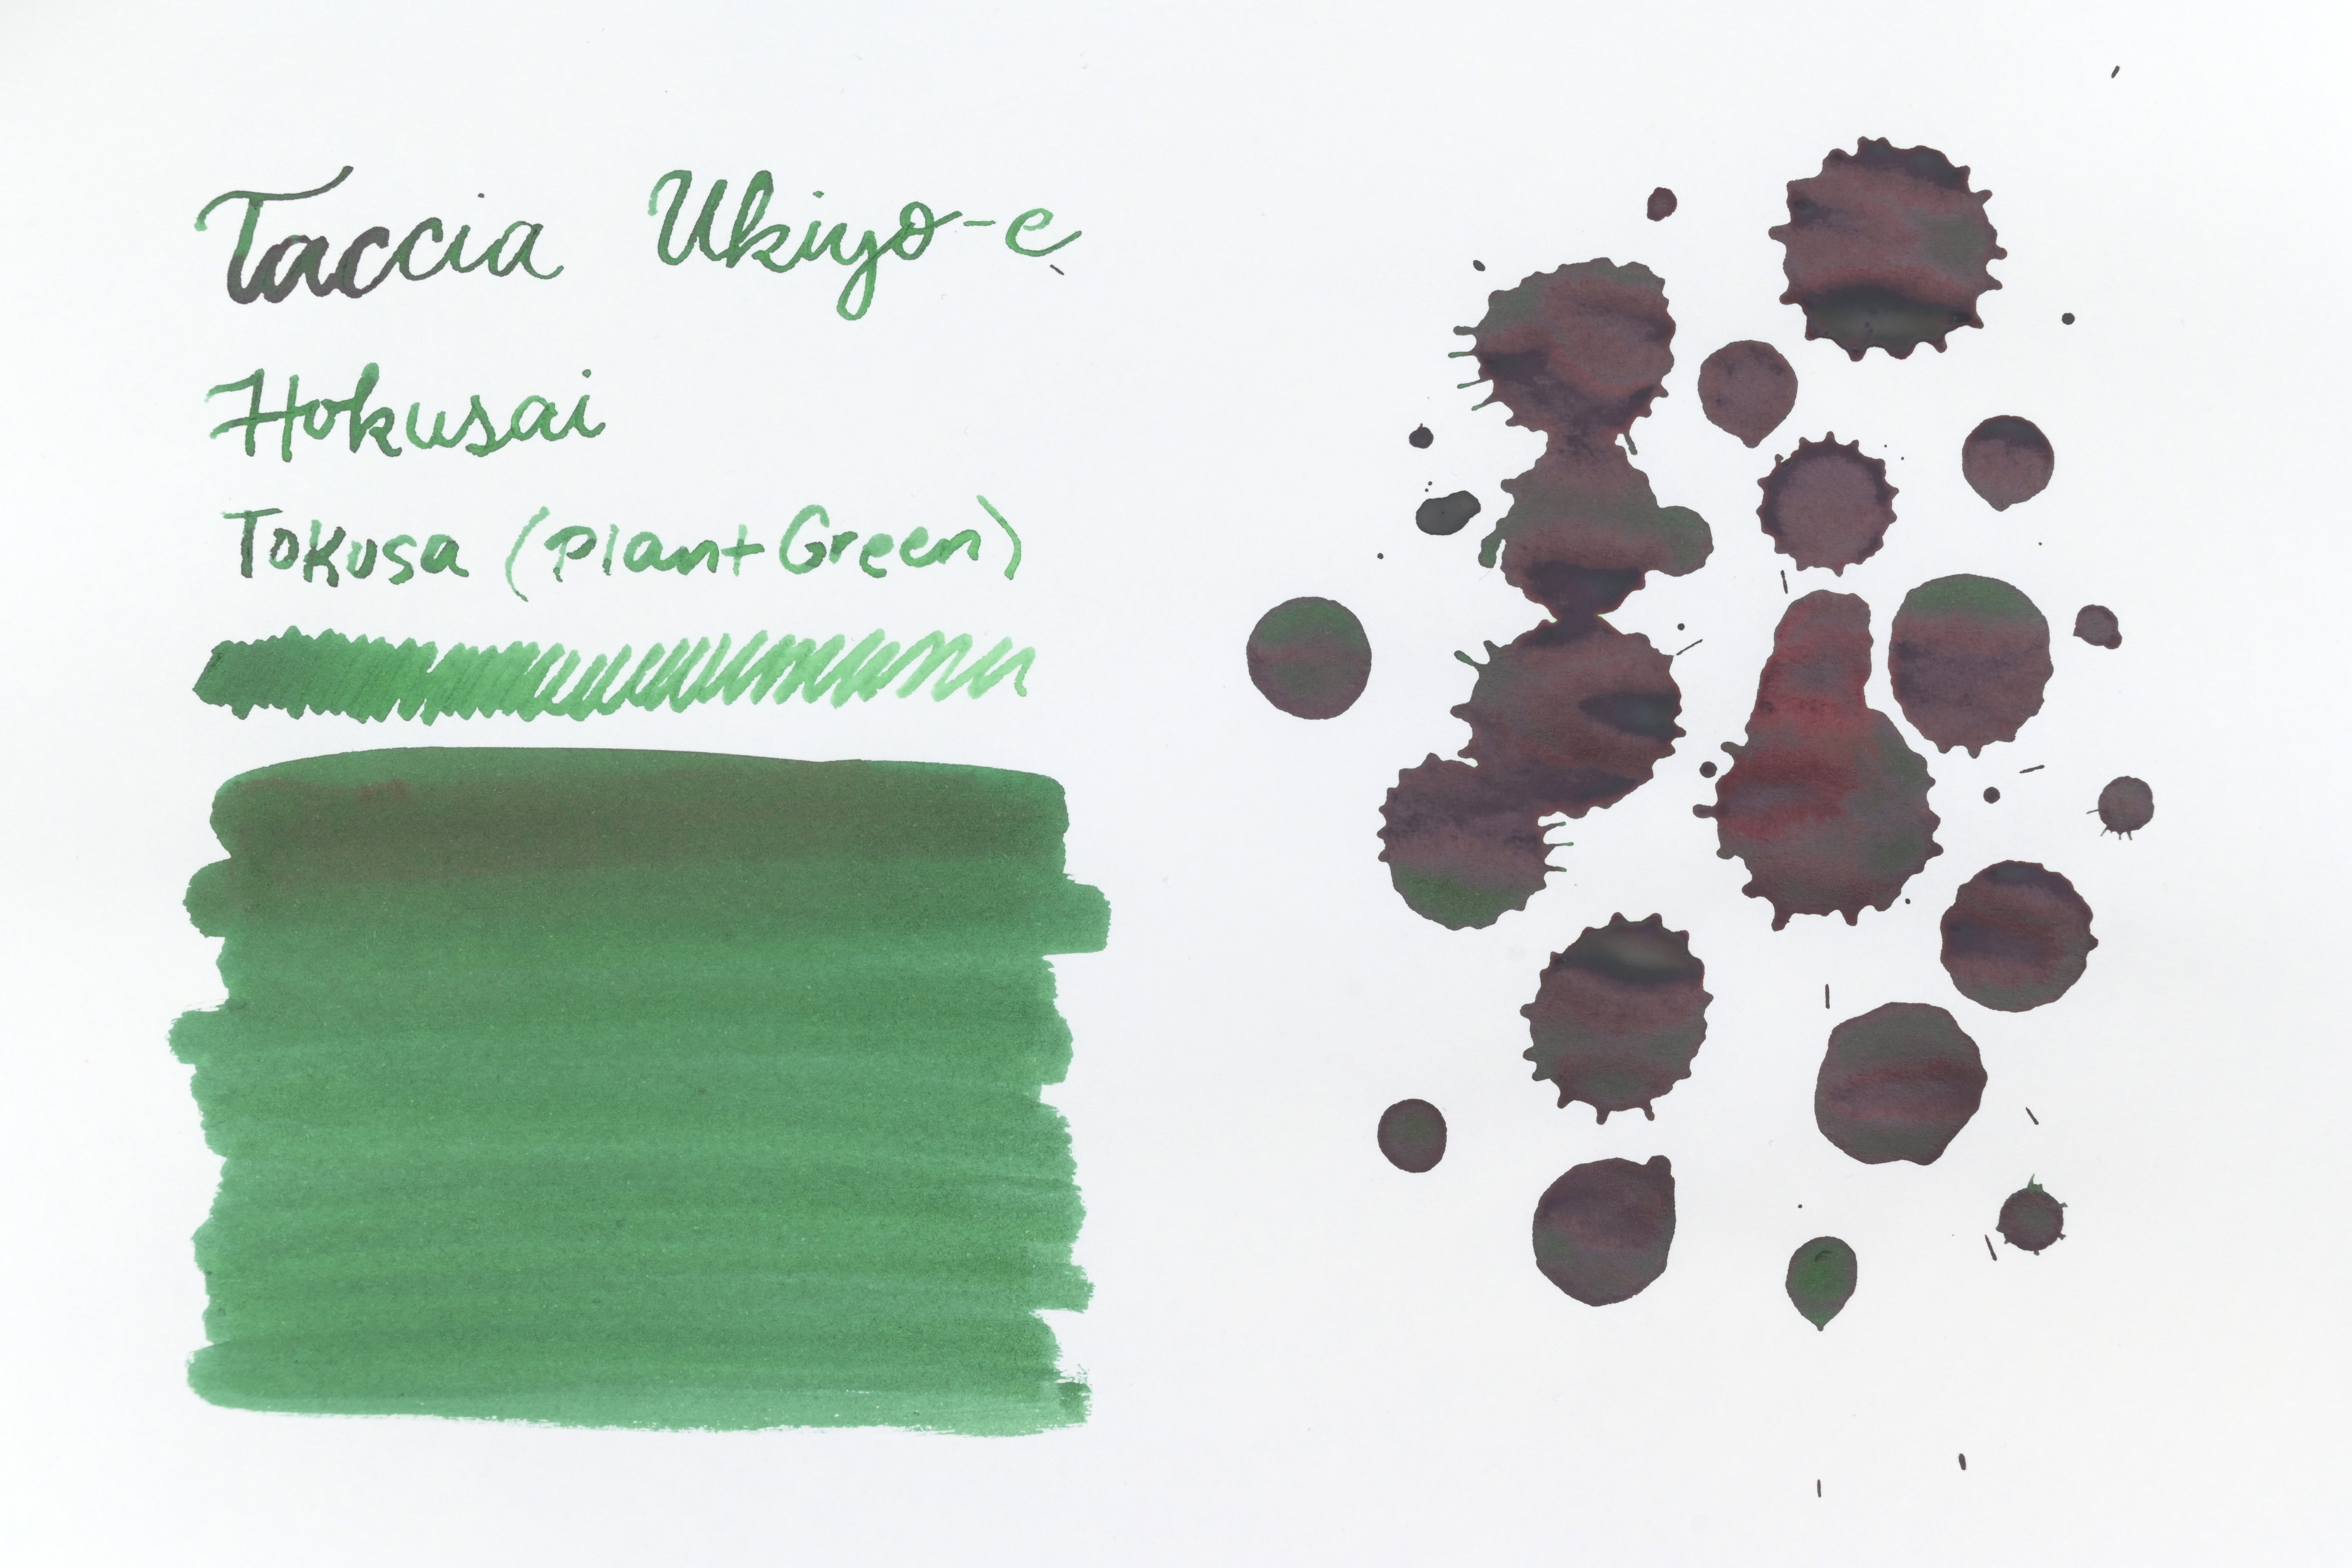 Taccia Ukiyo-e
Hokusai
Tokusa (Plant Green)